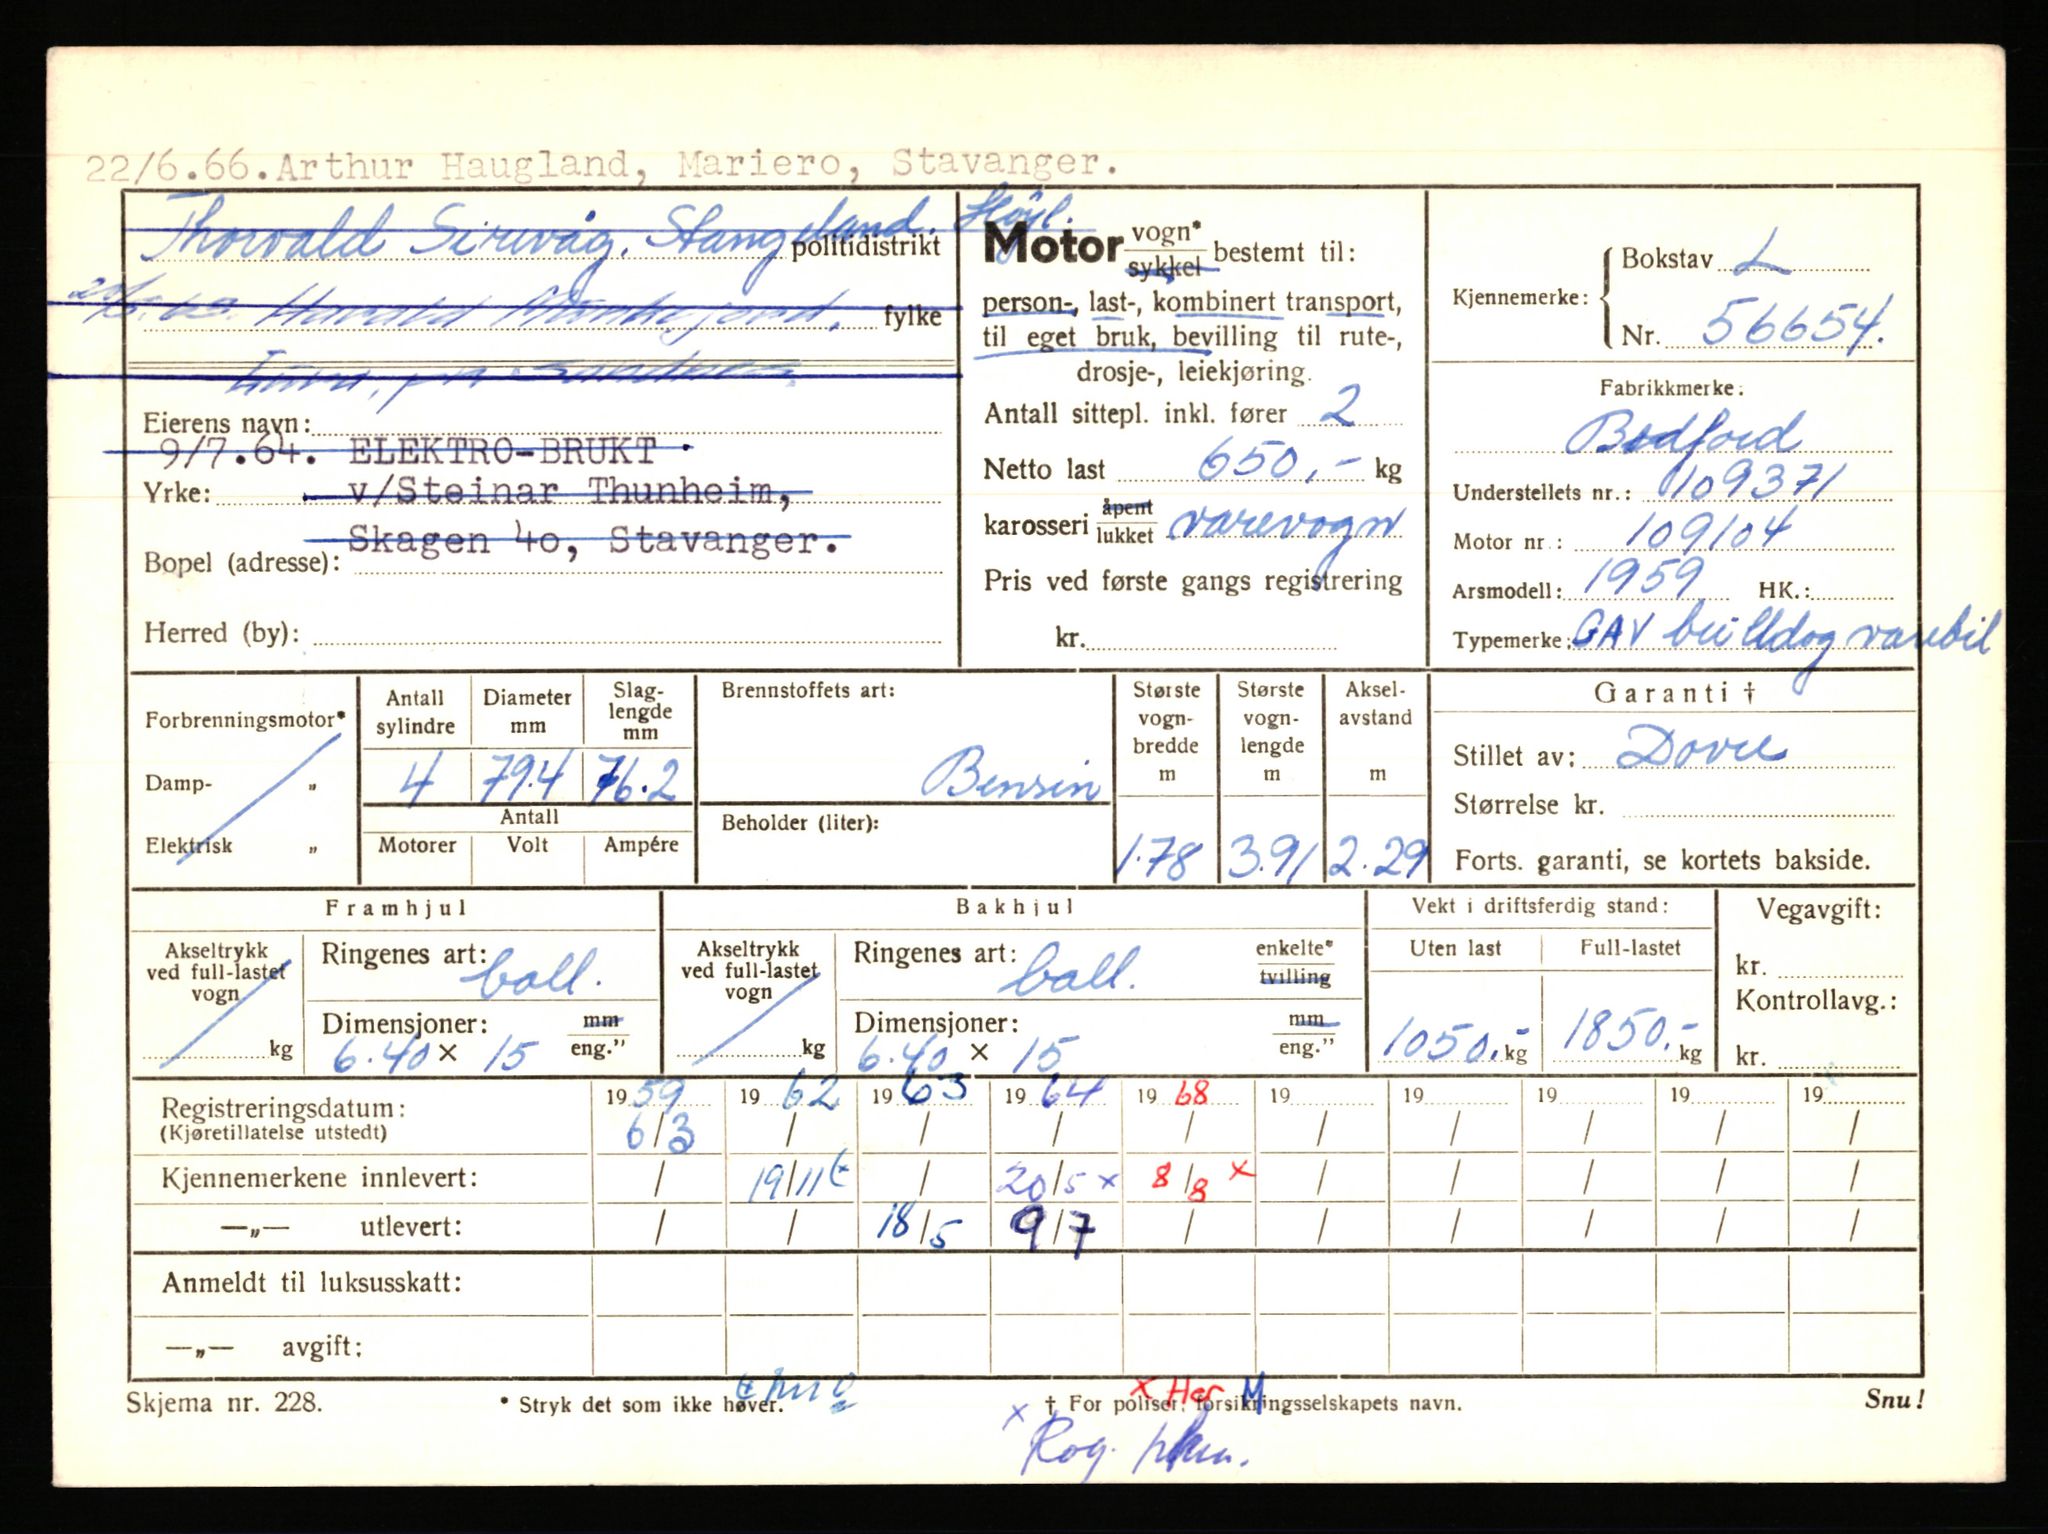 22/6.66. Arthur Haugland, Mariero, Stavanger.
Thorvald Sirevåg, Stangeland. Høyl.
politidistrikt
Harald
fylke
Eierens navn:
9/7.64. ELEKTRO-BRUKT
Yrke: v/Steinar Thunheim,
Skagen 4o, Stavanger.
Bopel (adresse):
Herred (by):
Motor vogn* sykkel bestemt til:
person-, last-, kombinert transport,
til eget bruk, bevilling til rute-,
drosje-, leiekjøring.
Antall sittepl. inkl. fører 2
Netto last 650,- kg
karosseri åpent lukket varevogn
Pris ved første gangs registrering
kr.
Kjennemerke: Bokstav L
Nr. 56654.
Fabrikkmerke:
Bedford
Understellets nr.: 109371
Motor nr.: 109104
Arsmodell: 1959 HK.:
Typemerke: CAV bulldog varebil
Forbrenningsmotor*
Damp- „
Elektrisk „
Antall sylindre
Diameter mm
Slag-lengde mm
4 79.4 76.2
Antall
Motorer Volt Ampére
Brennstoffets art:
Bensin
Beholder (liter):
Største vogn-bredde m
1.78
Største vogn-lengde m
3.91
Aksel-avstand m
2.29
Garanti †
Stillet av: Dovre
Størrelse kr.
Forts. garanti, se kortets bakside.
Framhjul
Akseltrykk ved full-lastet vogn
kg
Ringenes art: ball.
Dimensjoner: mm eng."
6.40 x 15
Bakhjul
Akseltrykk ved full-lastet vogn
kg
Ringenes art: ball.
enkelte* tvilling
Dimensjoner: mm eng."
6.40 x 15
Vekt i driftsferdig stand:
Uten last Full-lastet
1050.- kg 1850.- kg
Vegavgift:
kr.
Kontrollavg.:
kr.
Registreringsdatum: 1959 1962 1963 1964 1968 19 19 19 19 19
(Kjøretillatelse utstedt) 6/3 / / / / / / / / /
Kjennemerkene innlevert: / 19/11 / 20/5 x 8/8 x / / / / /
—„— utlevert: / / 18/5 9/7 / / / / / /
Anmeldt til luksusskatt:
—„— avgift:
Skjema nr. 228.
* Stryk det som ikke høver.
† For poliser: forsikringsselskapets navn.
Snu!
x Her M
x Rog.